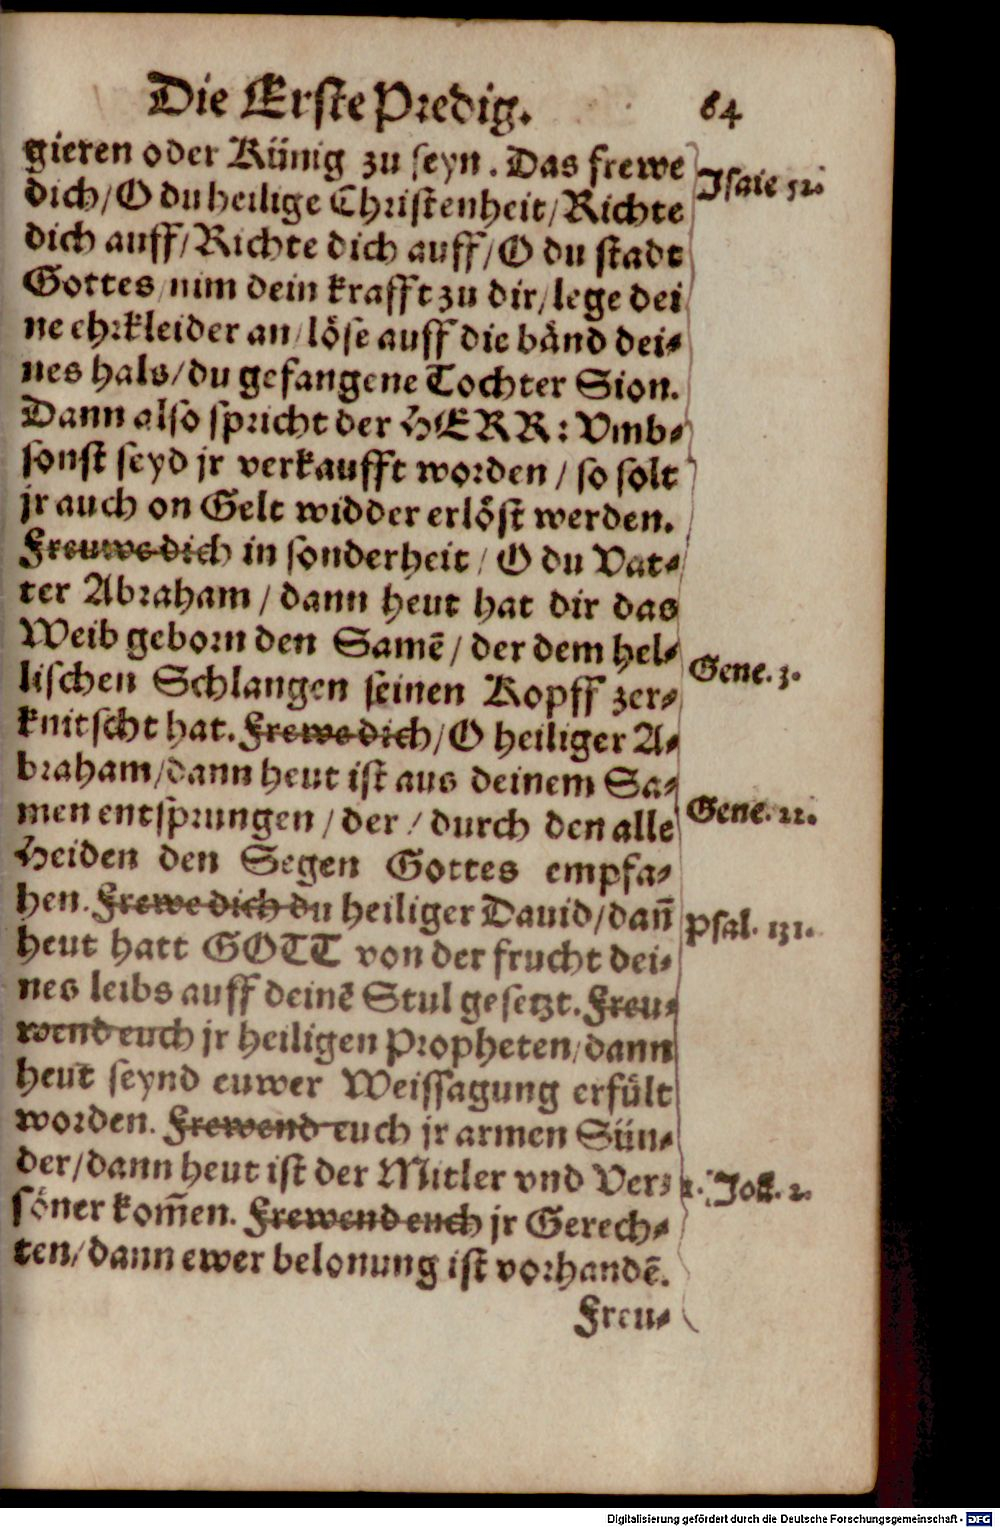 Die Erste Predig. 64
gieren oder Künig zu seyn. Das frewe
Isaie 52.
dich/ O du heilige Christenheit/ Richte
dich auff/ Richte dich auff/ O du stadt
Gottes/ nim dein krafft zu dir/ lege dei
ne ehrkleider an/ löse auff die bänd dei⸗
nes hals/ du gefangene Tochter Sion.
Dann also spricht der HERR: Vmb⸗
sonst seyd jr verkaufft worden/ so solt
jr auch on Gelt widder erlöst werden.
Freuwe dich in sonderheit/ O du Vat⸗
ter Abraham/ dann heut hat dir das
Weib geborn den Samē/ der dem hel⸗
Gene. 3.
lischen Schlangen seinen Kopff zer⸗
knitscht hat. Frewe dich/ O heiliger A⸗
braham/ dann heut ist aus deinem Sa⸗
men entsprungen/ der/ durch den alle
Gene. 22.
Heiden den Segen Gottes empfa⸗
hen. Frewe dich du heiliger Dauid/ dañ
Psal. 131.
heut hatt GOTT von der frucht dei⸗
nes leibs auff deinē Stul gesetzt. Freu⸗
wend euch jr heiligen Propheten/ dann
heut seynd euwer Weissagung erfült
worden. Frewend euch jr armen Sün⸗
der/ dann heut ist der Mitler vnd Ver⸗
1. Joh. 2.
söner kom̄en. Frewend euch jr Gerech⸗
ten/ dann ewer belonung ist vorhandē.
Freu⸗
Digitalisierung gefördert durch die Deutsche Forschungsgemeinschaft - DFG